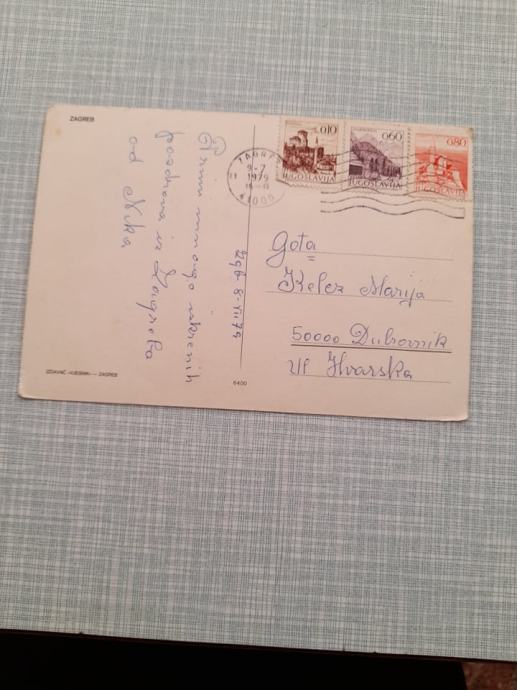 ZAGREB
Primi mnogo iskrenih
pozdrava iz Zagreba
od Nika
Zgb. 8-VII 79
ZAGREB
9-7
1979
41000
0,10
JUGOSLAVIJA
0,60
JUGOSLAVIJA
0,80
JUGOSLAVIJA
Gđta
Kelez Marija
50000 Dubrovnik
Ul Hvarska
IZDAVAČ »VJESNIK« — ZAGREB
6400